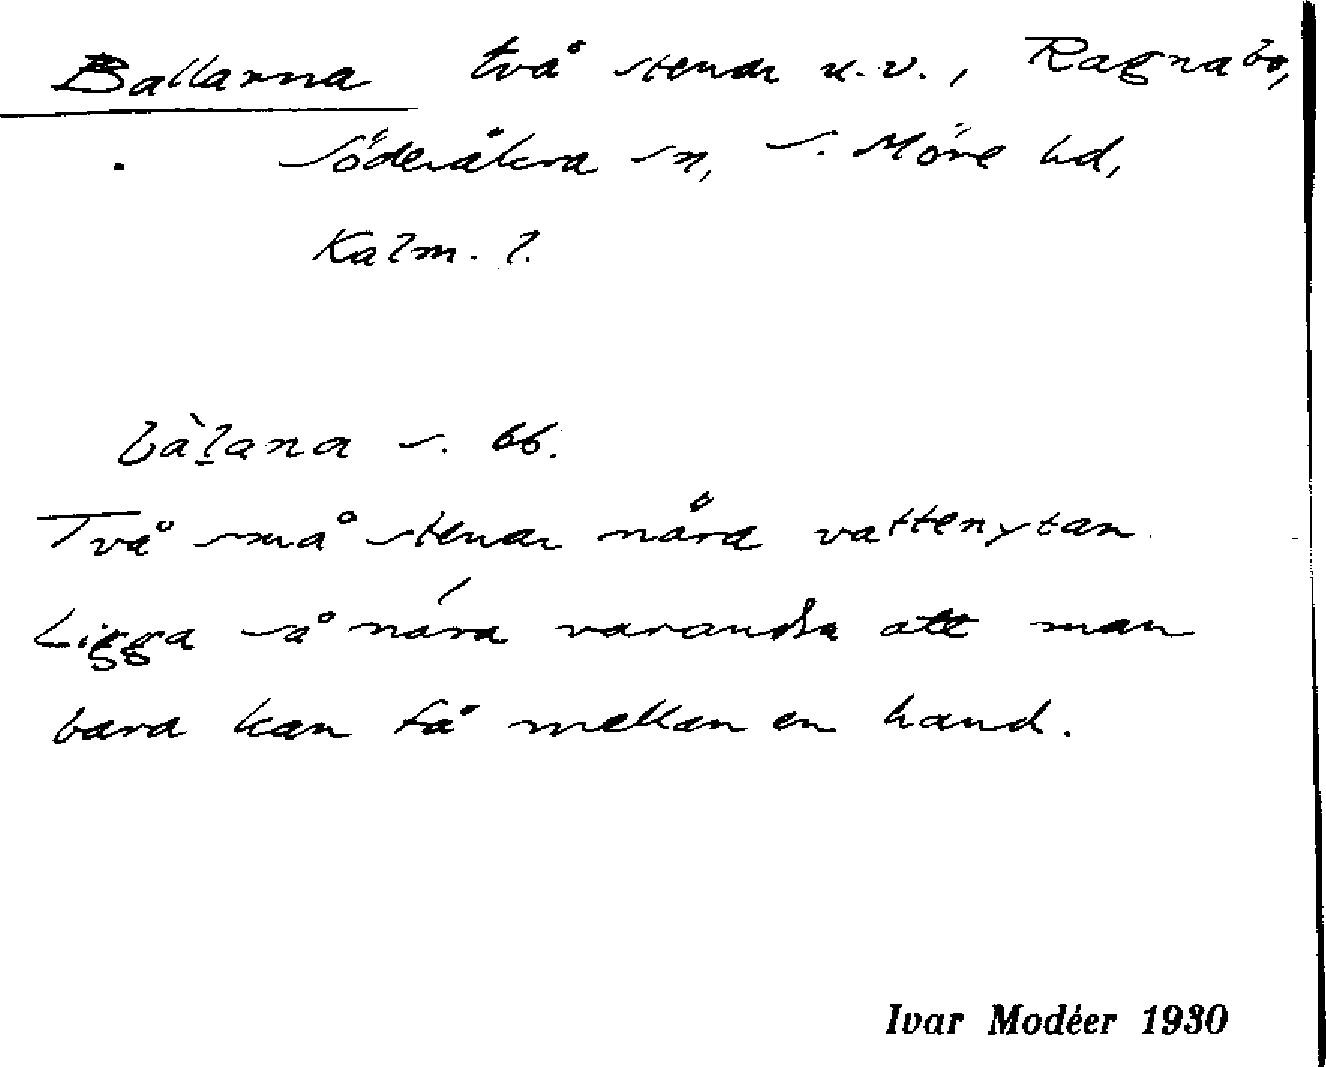 Ballarna två stenar u.v., Ragnabo,
Söderåkra sn, S. Möre hd,
Kalm. l.
bàl̠ana s. bb.
Två små stenar nära vattenytan.
Ligga så nära varandra att man
bara kan få mellan en hand.
Ivar Modéer 1930